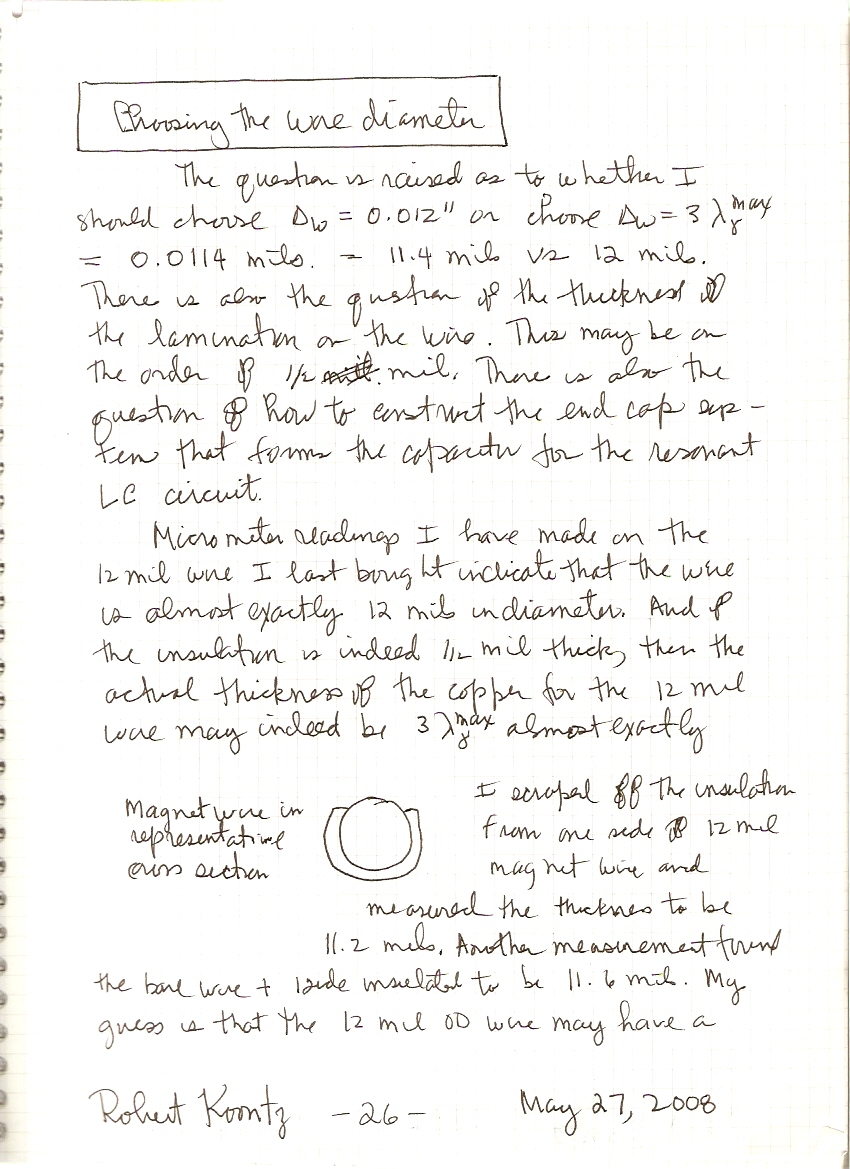 Choosing the wire diameter
The question is raised as to whether I
should choose Δw = 0.012" or choose Δw = 3 λγ^max
= 0.0114 mils. = 11.4 mils vs 12 mils.
There is also the question of the thickness of
the lamination on the wire. This may be on
the order of 1/2 mil. There is also the
question of how to construct the end cap sys-
tem that forms the capacitor for the resonant
LC circuit.
Micrometer readings I have made on the
12 mil wire I last bought indicate that the wire
is almost exactly 12 mils in diameter. And if
the insulation is indeed 1/2 mil thick, then the
actual thickness of the copper for the 12 mil
wire may indeed be 3 λγ^max almost exactly
Magnet wire in
representative
cross section
I scraped off the insulation
from one side of 12 mil
magnet wire and
measured the thickness to be
11.2 mils. Another measurement found
the bare wire + 1 side insulated to be 11.6 mils. My
guess is that the 12 mil OD wire may have a
Robert Koontz - 26 - May 27, 2008